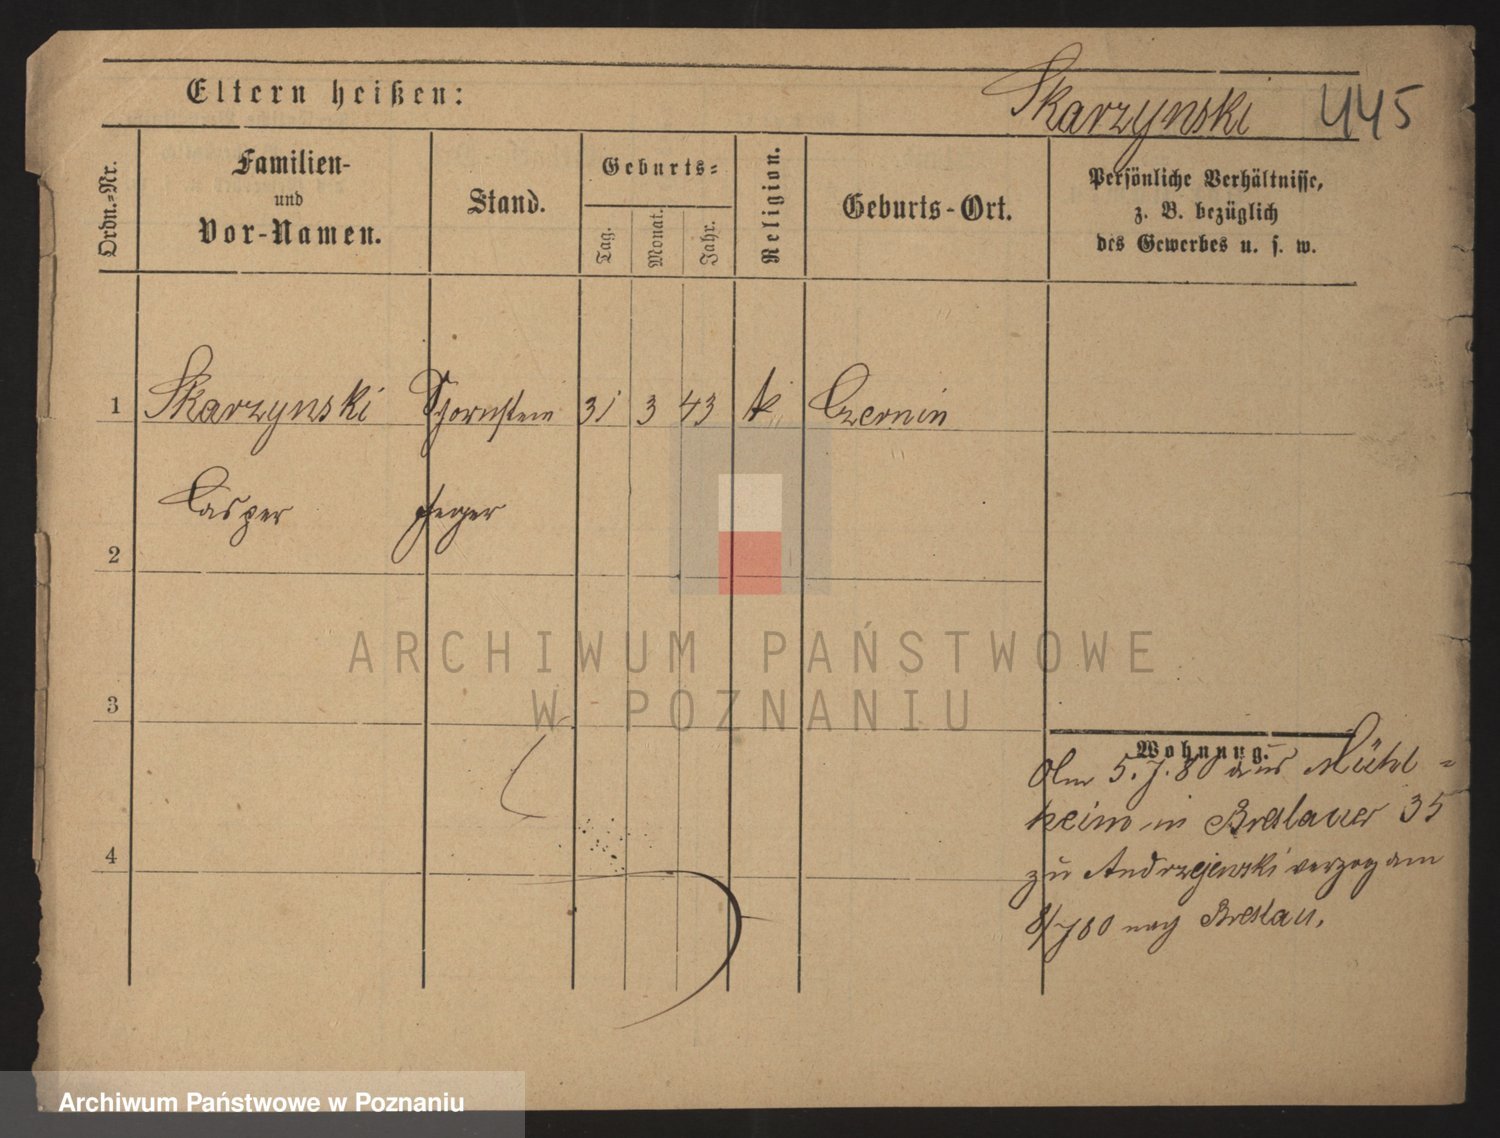 Eltern heißen:
Skarzynski 445
Ordn.-Nr.
Familien-
und
Vor-Namen.
Stand.
Geburts-
Tag.
Monat.
Jahr.
Religion.
Geburts-Ort.
Persönliche Verhältnisse,
z. B. bezüglich
des Gewerbes u. s. w.
1 Skarzynski Schornstein 31 3 43 k. Czernin
Casper feger
2
3
4
ARCHIWUM PAŃSTWOWE
W POZNANIU
Wohnung.
5. 7. 80 aus Mühl-
heim in Breslauer 35
zu Andrzejewski verzog am
8/7 80 nach Breslau.
Archiwum Państwowe w Poznaniu